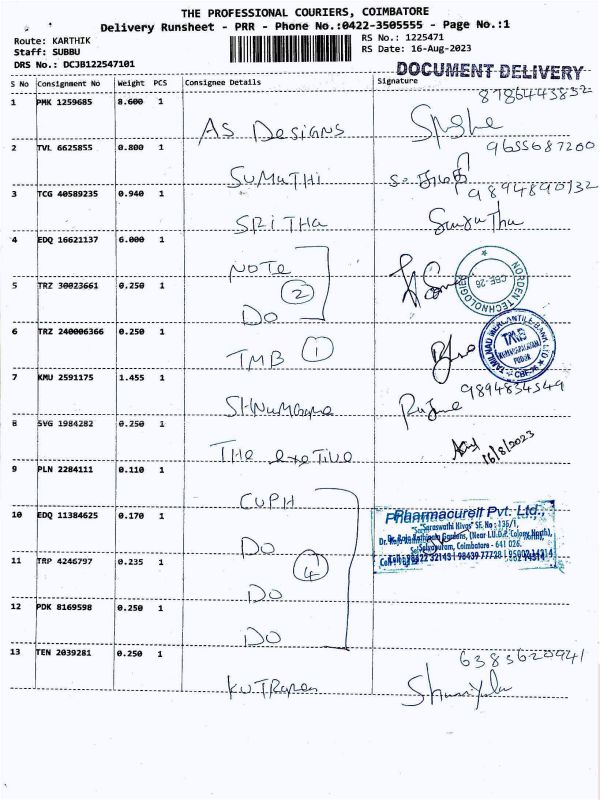 THE PROFESSIONAL COURIERS, COIMBATORE
Delivery Runsheet - PRR - Phone No.:0422-3505555 - Page No.:1
Route: KARTHIK
RS No.: 1225471
Staff: SUBBU
RS Date: 16-Aug-2023
DRS No.: DCJB122547101
DOCUMENT DELIVERY
S No Consignment No Weight PCS Consignee Details Signature
8786443832
1 PMK 1259685 8.600 1
AS DESIGNS
9655687200
2 TVL 6625855 0.800 1
SUMATHI
9894890132
3 TCG 40589235 0.940 1
SRITHA
4 EDQ 16621137 6.000 1
NOTE
NORDEN TECHNOLOGIES
CBE-26
5 TRZ 30023661 0.250 1
2
DO
6 TRZ 240006366 0.250 1
TMB 1
TAMILNAD MERCANTILE BANK LTD
TMB
PUDUR
CBE-
7 KMU 2591175 1.455 1
9894834549
8 SVG 1984282 0.250 1
THE
16/8/2023
9 PLN 2284111 0.110 1
CUPH
10 EDQ 11384625 0.170 1
DO
Pharmacurell Pvt. Ltd.,
"Saraswathi Nivas" SF. No : 135/1,
Gardens, (Near L.U.D.P. Colony North),
Selvapuram, Coimbatore - 641 026.
4
11 TRP 4246797 0.235 1
DO
12 PDK 8169598 0.250 1
DO
13 TEN 2039281 0.250 1
6383620941